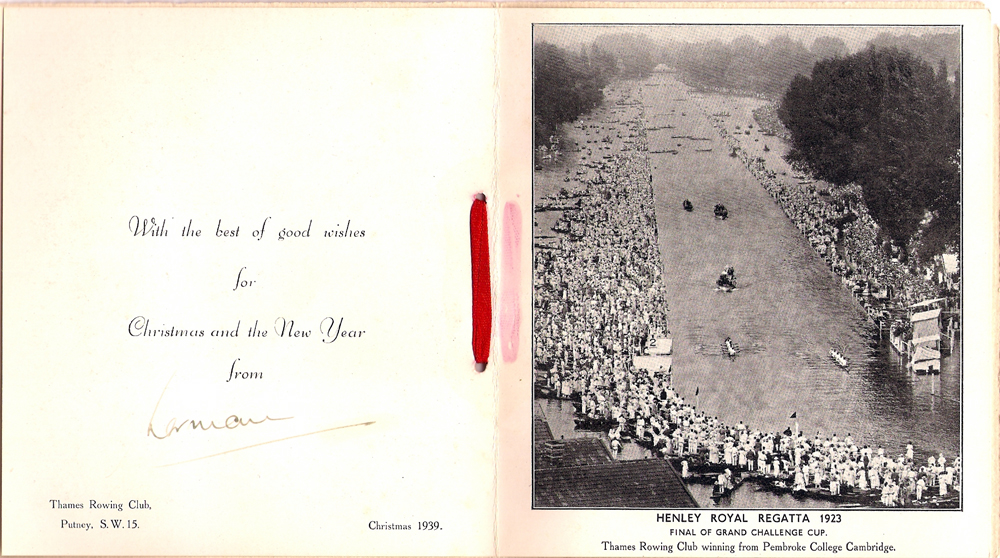 With the best of good wishes
for
Christmas and the New Year
from
Norman
Thames Rowing Club,
Putney, S.W.15.
Christmas 1939.
HENLEY ROYAL REGATTA 1923
FINAL OF GRAND CHALLENGE CUP.
Thames Rowing Club winning from Pembroke College Cambridge.